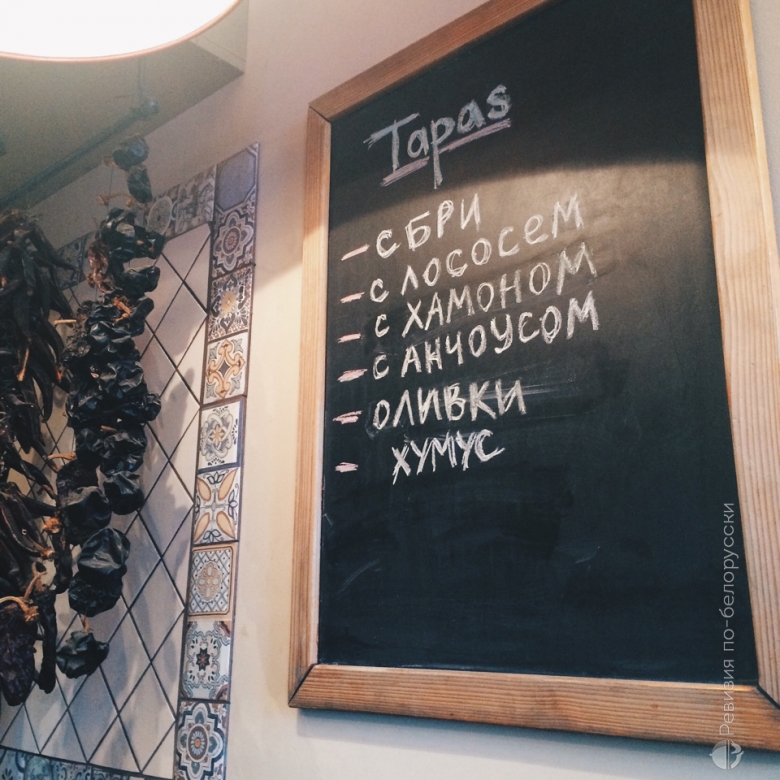 Tapas
- С БРИ
- С ЛОСОСЕМ
- С ХАМОНОМ
- С АНЧОУСОМ
- ОЛИВКИ
- ХУМУС
Ревизия по-белорусски